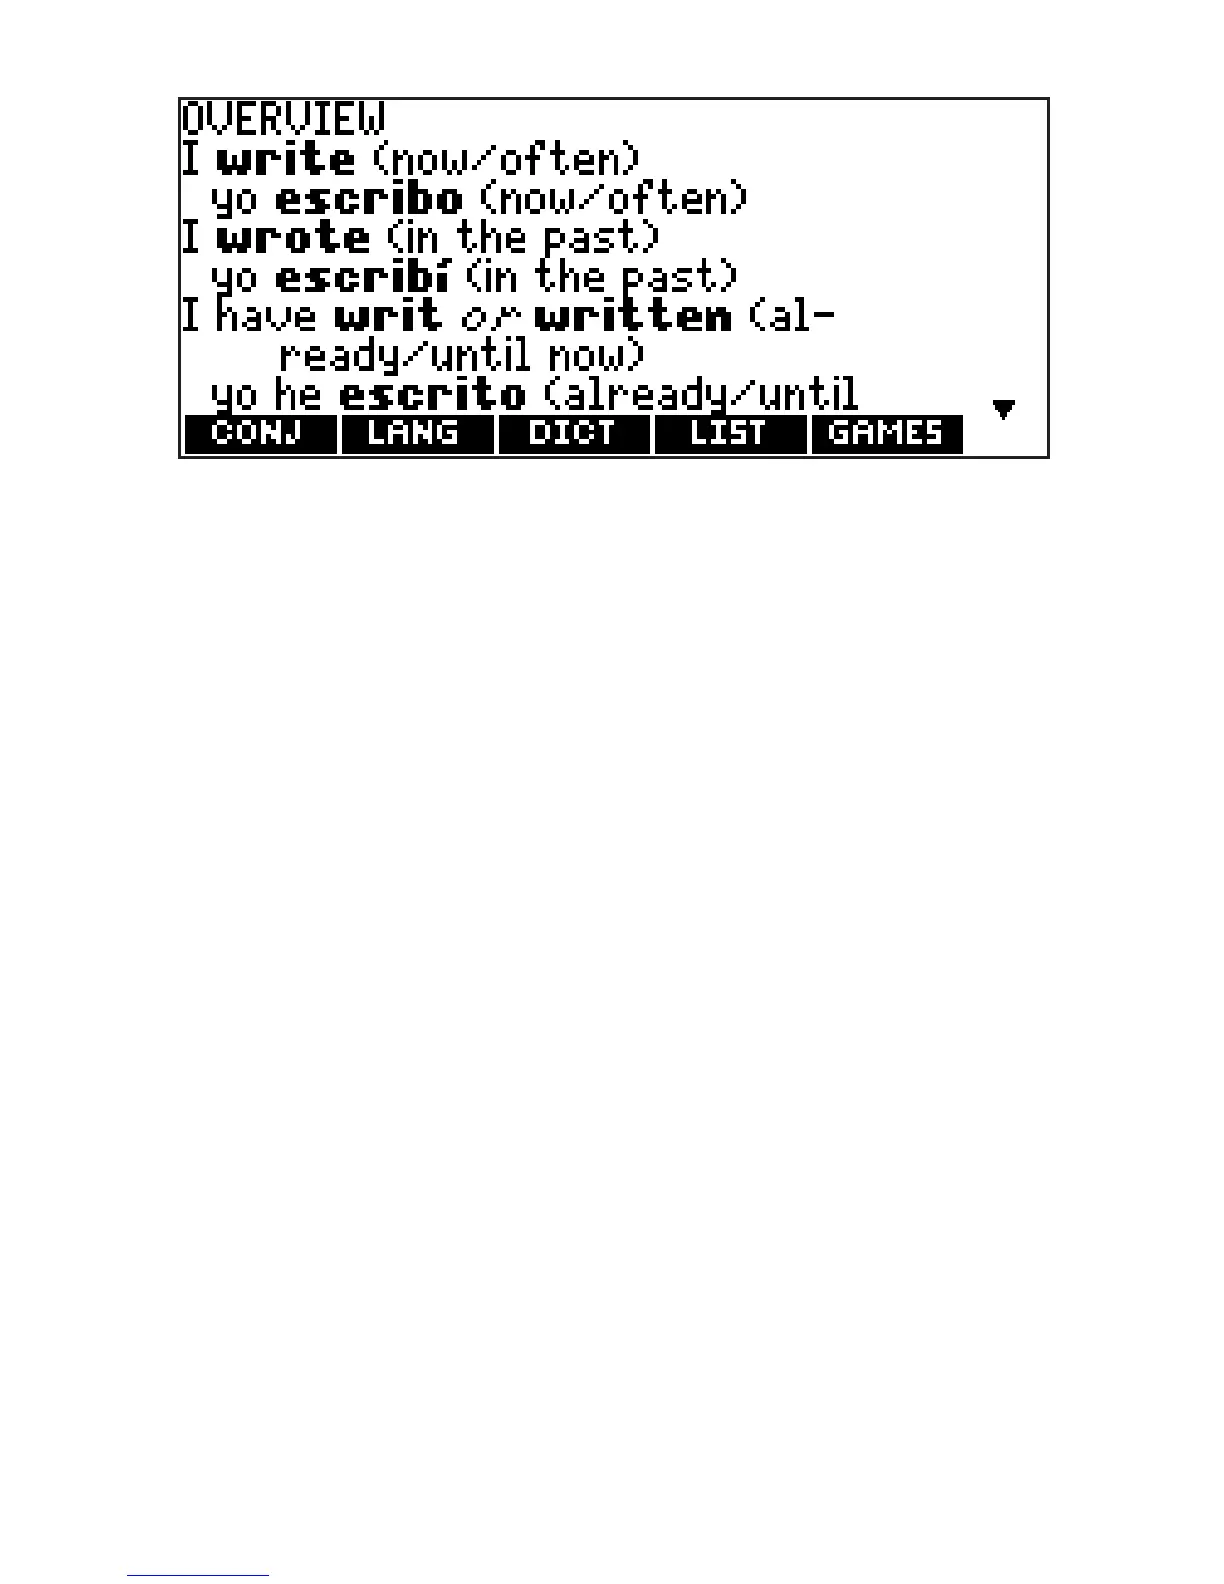 OVERVIEW
I write (now/often)
yo escribo (now/often)
I wrote (in the past)
yo escribí (in the past)
I have writ or written (al-
ready/until now)
yo he escrito (already/until
CONJ LANG DICT LIST GAMES